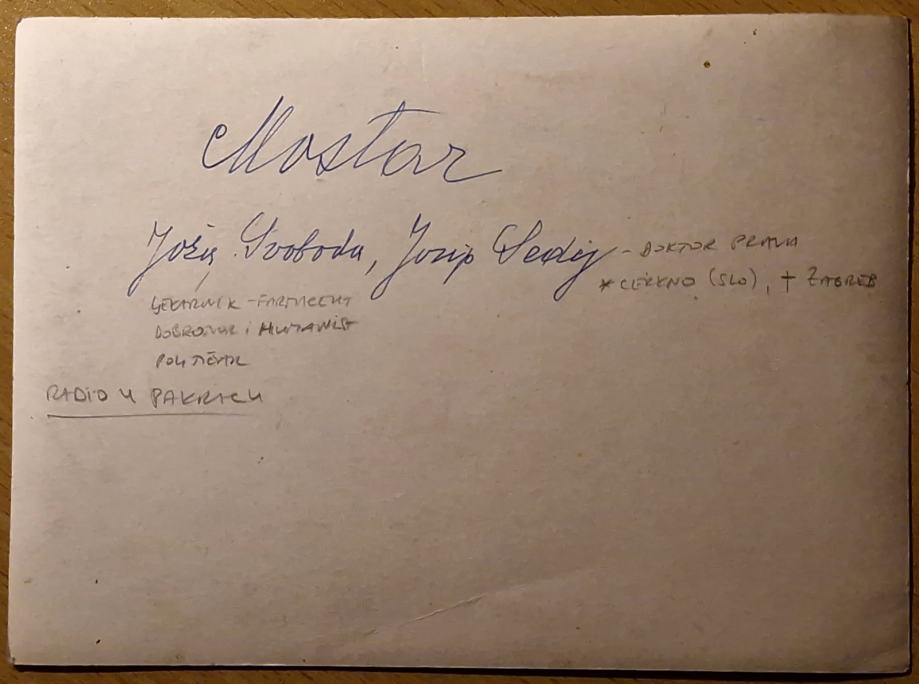 Mostar
Jožiy Svoboda, Josip Sedej - DOKTOR PRAVA
* CERKNO (SLO), † ZAGREB
LJEKARNIK - FARMACEUT
DOBROTVOR i HUMANIST
POLITIČAR
RADIO U PAKRACU